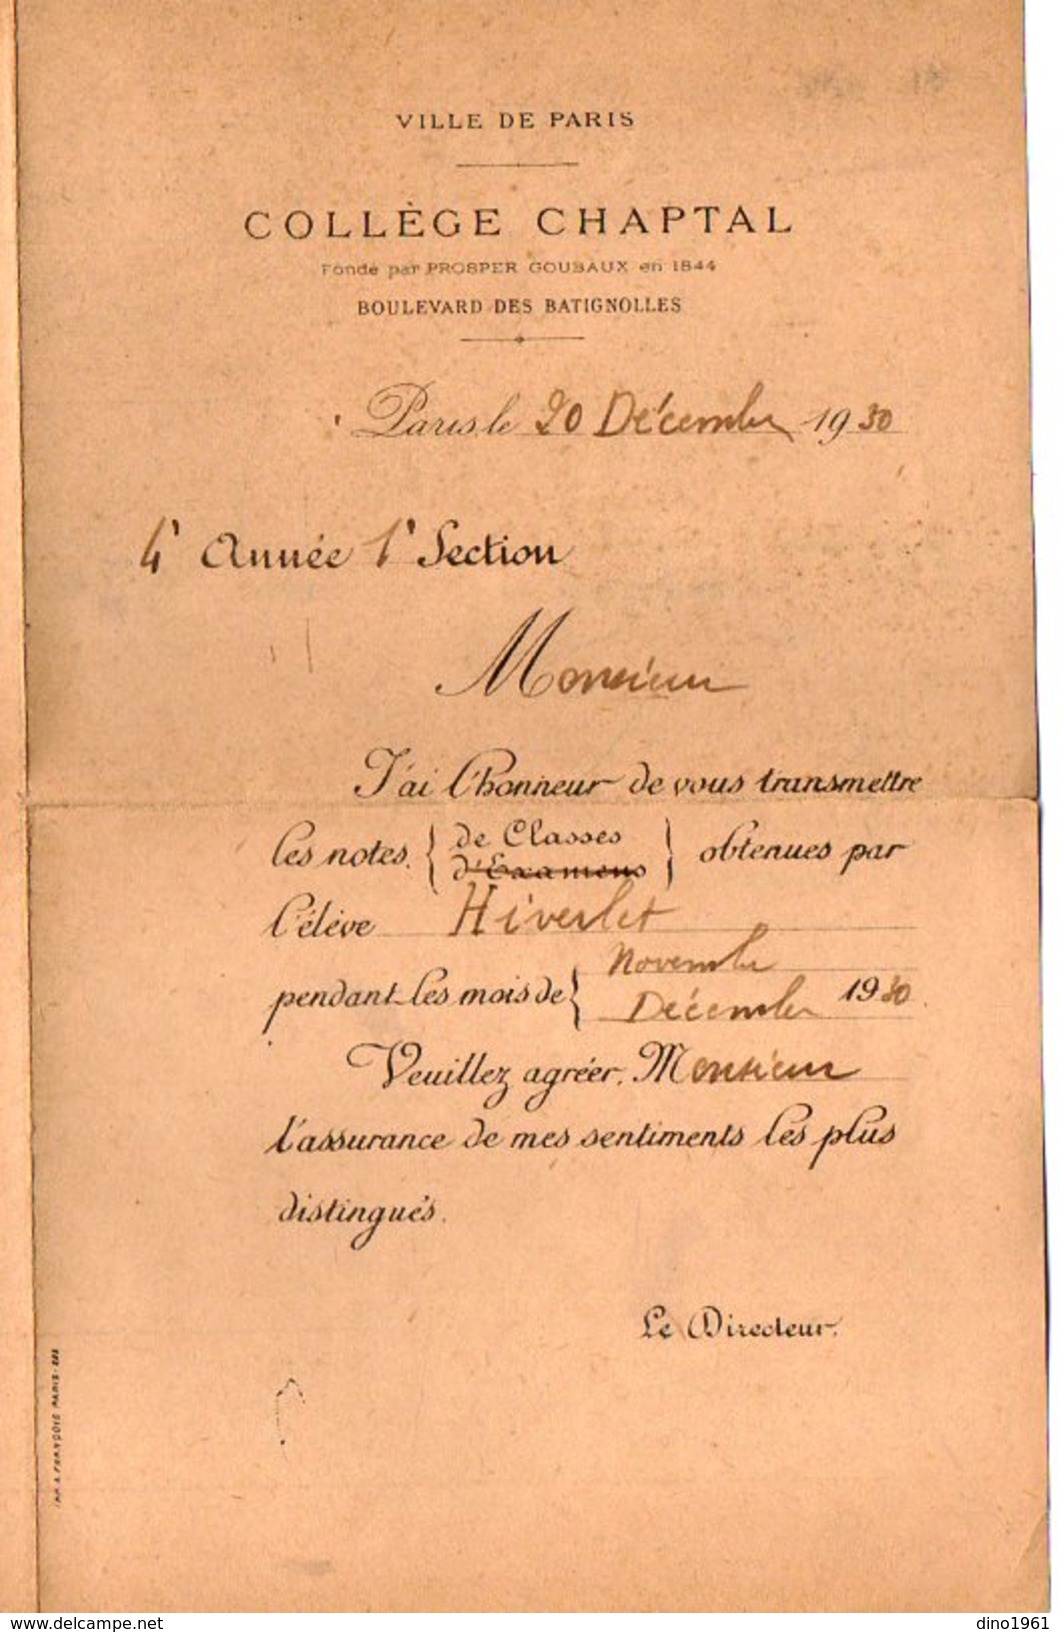 VILLE DE PARIS
COLLÈGE CHAPTAL
Fondé par PROSPER GOUBAUX en 1844
BOULEVARD DES BATIGNOLLES
Paris, le 20 Décembre 1930
4e Année 1e Section
Monsieur
J'ai l'honneur de vous transmettre
les notes { de Classes
d'Examens } obtenues par
l'élève Hiverlet
pendant les mois de { Novembre
Décembre 1930.
Veuillez agréer, Monsieur
l'assurance de mes sentiments les plus
distingués.
Le Directeur.
IMP. A. FRANÇOIS PARIS
www.delcampe.net
dino1961